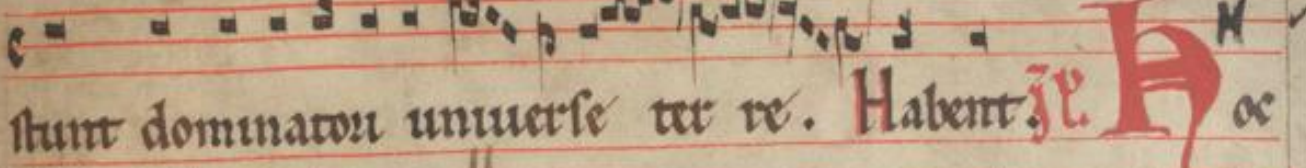 stunt dominatori uniuerse ter re. Habent. Hoc